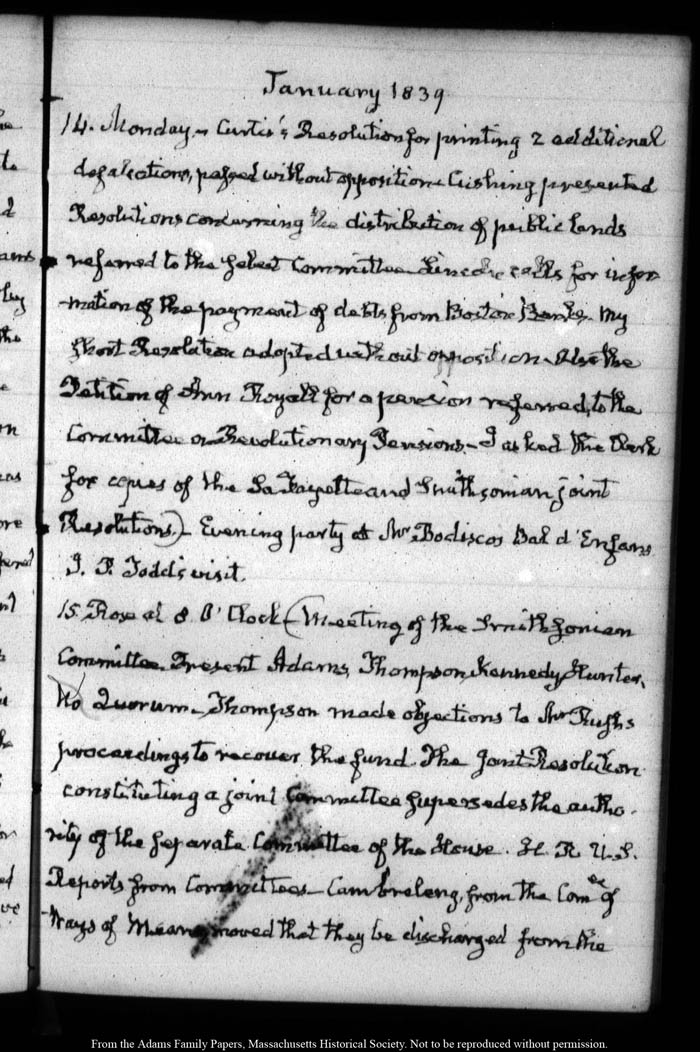 January 1839
14. Monday – Curtis's Resolution for printing 2 additional
defalcations, passed without opposition – Cushing presented
Resolutions concerning the distribution of public lands
referred to the select Committee – Lincoln calls for infor
mation of the payment of debts from Boston Banks – My
short Resolution adopted without opposition – Also the
Petition of Ann Royall for a pension referred, to the
Committee on Revolutionary Pensions – I asked the Clerk
for copies of the La Fayette and Smithsonian joint
Resolutions.) – Evening party at Mr. Bodiscos Bal d'Enfans
J. P. Todd's visit.
15. Rose at 8 O'Clock – (Meeting of the Smithsonian
Committee. Present Adams, Thompson, Kennedy, Hunter.
No Quorum – Thompson made objections to Mr Rush's
proceedings to recover the fund. The joint Resolution
constituting a joint Committee supersedes the autho-
rity of the separate Committee of the House. H. R. U.S.
Reports from Committees – Cambreleng, from the Comee of
Ways of Means, moved that they be discharged from the
From the Adams Family Papers, Massachusetts Historical Society. Not to be reproduced without permission.